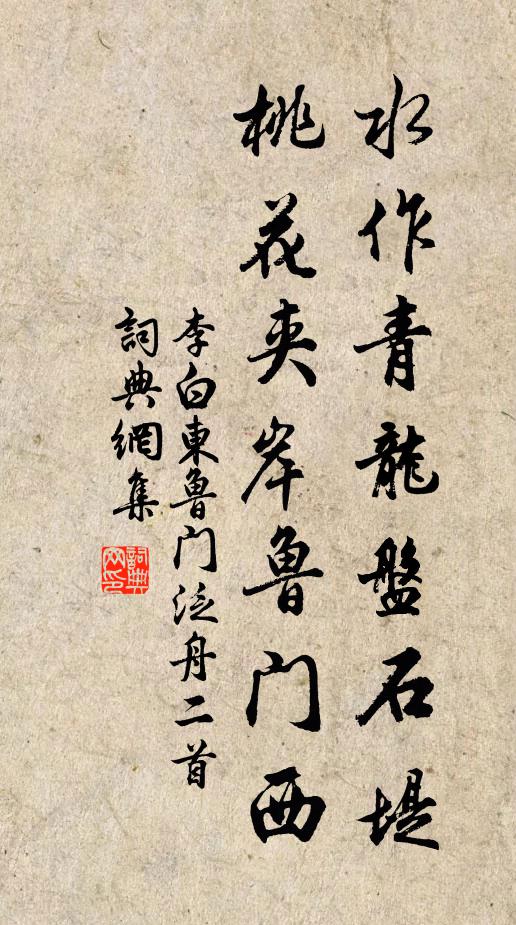 水作青龍盤石堤
桃花夾岸魯门西
李白東魯门泛舟二首
詞典網集
詞典网印